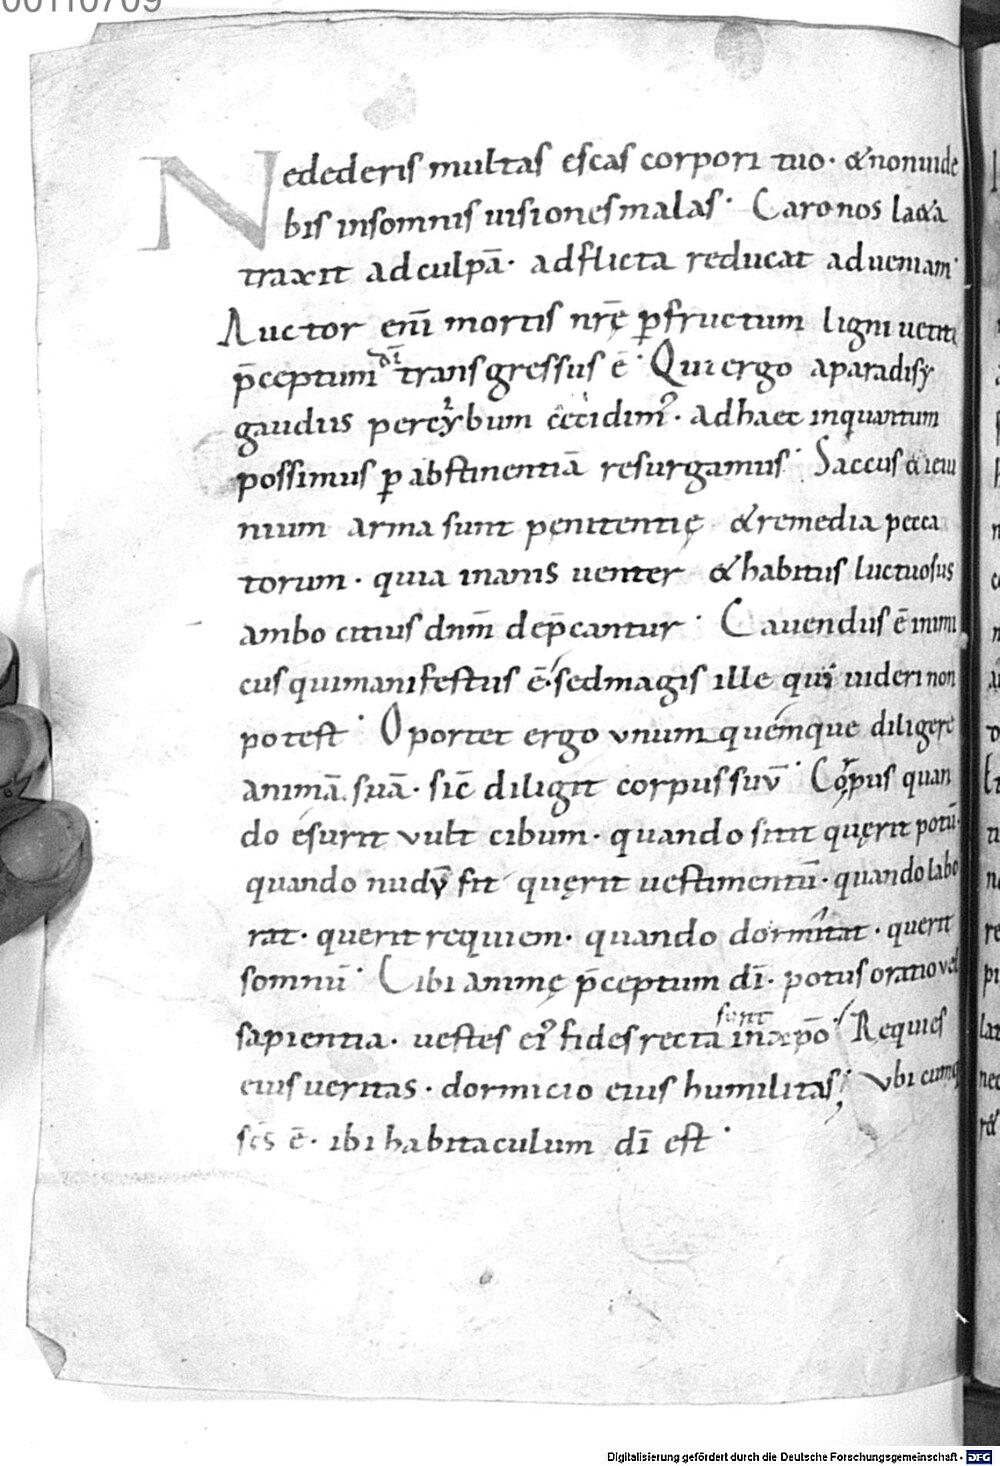 00110709
Nedederis multas escas corpori tuo· &nonuide
bis insomnis uisiones malas· Caro nos laeta
traxit ad culpā· adflicta reducat ad ueniam·
Auctor eni̅ mortis nr̅ę ꝑ fructum ligni uetiti
p̅ceptum di̅ transgressus ē· Qui ergo aparadisy
gaudiis per cybum cecidimꝰ· ad haec inquantum
possimus ꝑ abstinentiā resurgamus· Saccus & ieiu
nium arma sunt penitentię & remedia pecca
torum· quia inanis uenter & habitus luctuosus
ambo citius dnm̅ dep̅cantur· Cauendus ē inimi
cus qui manifestus ē· sed magis ille qui uideri non
potest· Oportet ergo unum quemque diligere
animā suā· sic̅ diligit corpus suū· Corpus quan
do esurit vult cibum· quando sitit quęrit potū·
quando nudꝰ fit quęrit uestimentū· quando labo
rat· querit requiem· quando dormitat· querit
somnū· Cibi animę p̅ceptum di̅· potus oratio vel
sapientia· uestes eiꝰ fides recta sunt in xpo̅· Requies
eius ueritas· dormicio eius humilitas; Vbi cumq
scs̅ ē· ibi habitaculum di̅ est·
Digitalisierung gefördert durch die Deutsche Forschungsgemeinschaft - DFG